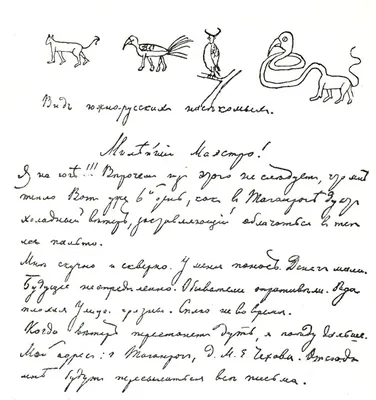 Видъ южнорусскихъ насѣкомыхъ.
Милѣйшій Маэстро!
Я на югѣ!!! Впрочемъ изъ этого не слѣдуетъ, что мнѣ
тепло. Вотъ уже 6 дней, какъ въ Таганрогѣ дуетъ
холодный вѣтеръ, заставляющій облачаться въ теп
лое пальто.
Мнѣ скучно и скверно. У меня поносъ. Денегъ мало.
Будущее неопредѣленно. Обыватели отвратительны.
Улицы грязны. Сплю не во время.
Когда вѣтеръ перестанетъ дуть, я поѣду дальше.
Мой адресъ: г. Таганрогъ, д. М. Е. Чехова. Отсюда
мнѣ будутъ пересылаться всѣ письма.